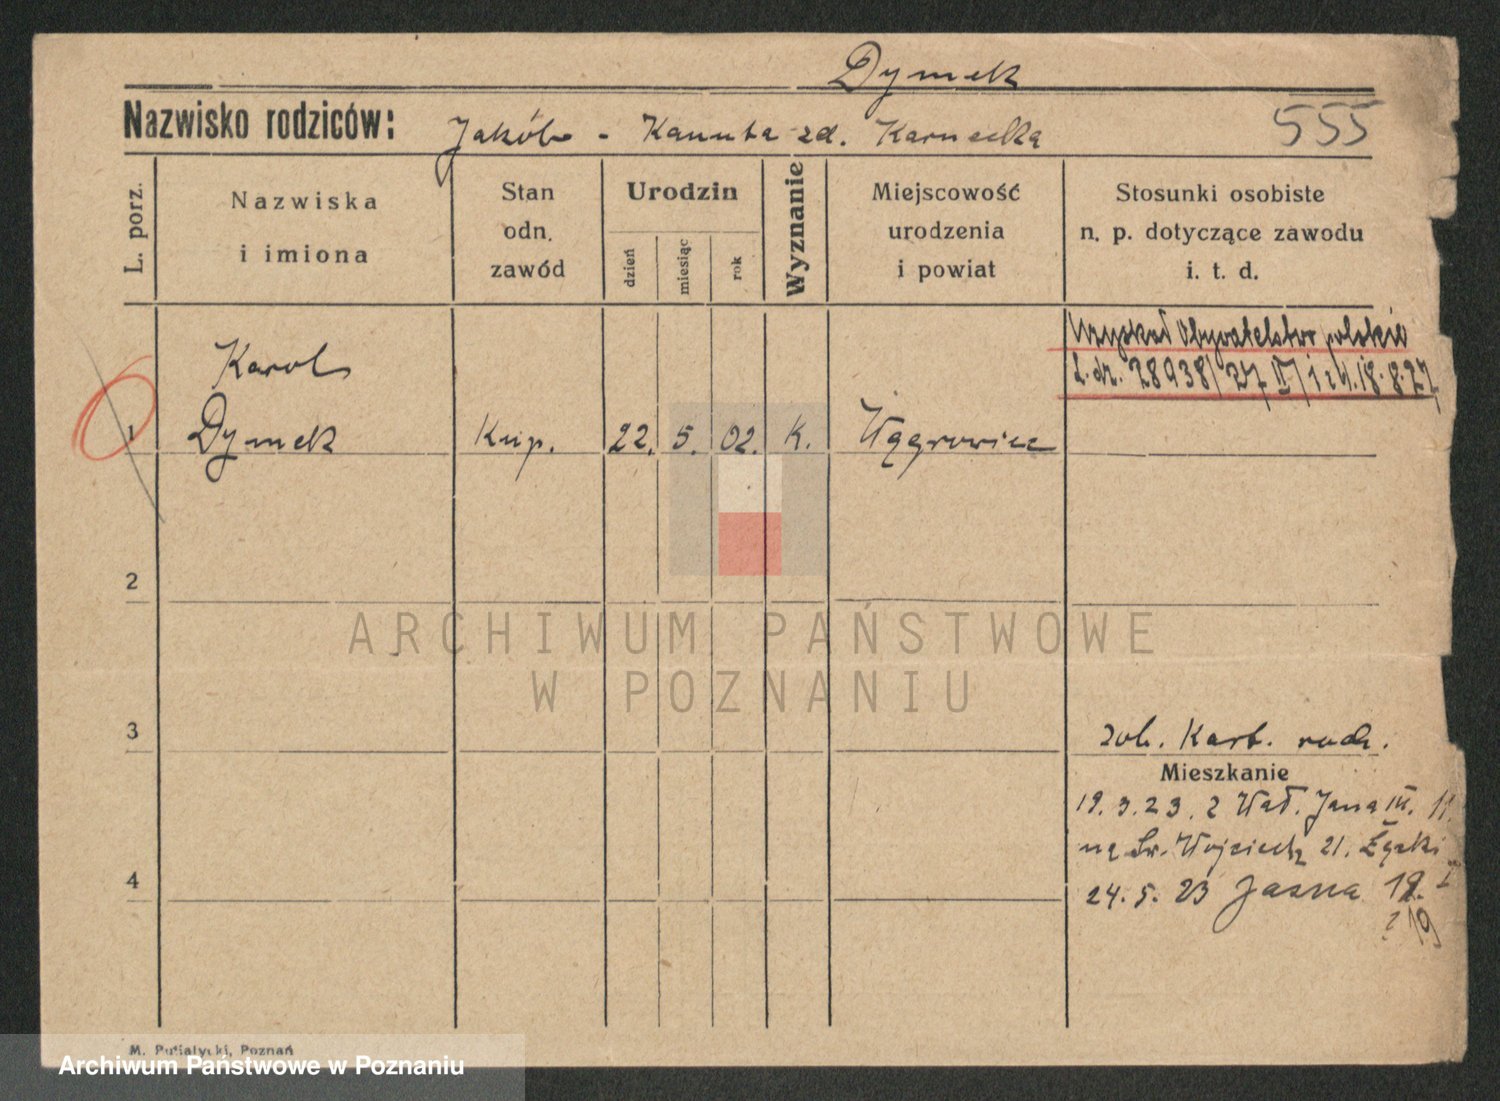 Dymek
Nazwisko rodziców: Jakób - Kanuta zd. Karnecka
555
L. porz.
Nazwiska
i imiona
Stan
odn.
zawód
Urodzin
dzień
miesiąc
rok
Wyznanie
Miejscowość
urodzenia
i powiat
Stosunki osobiste
n. p. dotyczące zawodu
i. t. d.
Uzyskał Obywatelstwo polskie
L. dz. 28938/27 IV/1 z d. 18.8.27
1
Karol
Dymek
Kup.
22. 5. 02.
K.
Wągrowiec
2
ARCHIWUM PAŃSTWOWE
W POZNANIU
3
zob. Kart. rodz.
Mieszkanie
19.3.23. z Wał. Jana III. 11.
na Św. Wojciech 21.
4
24.5.23 Jasna 19.
19
M. Putiatycki, Poznań
Archiwum Państwowe w Poznaniu